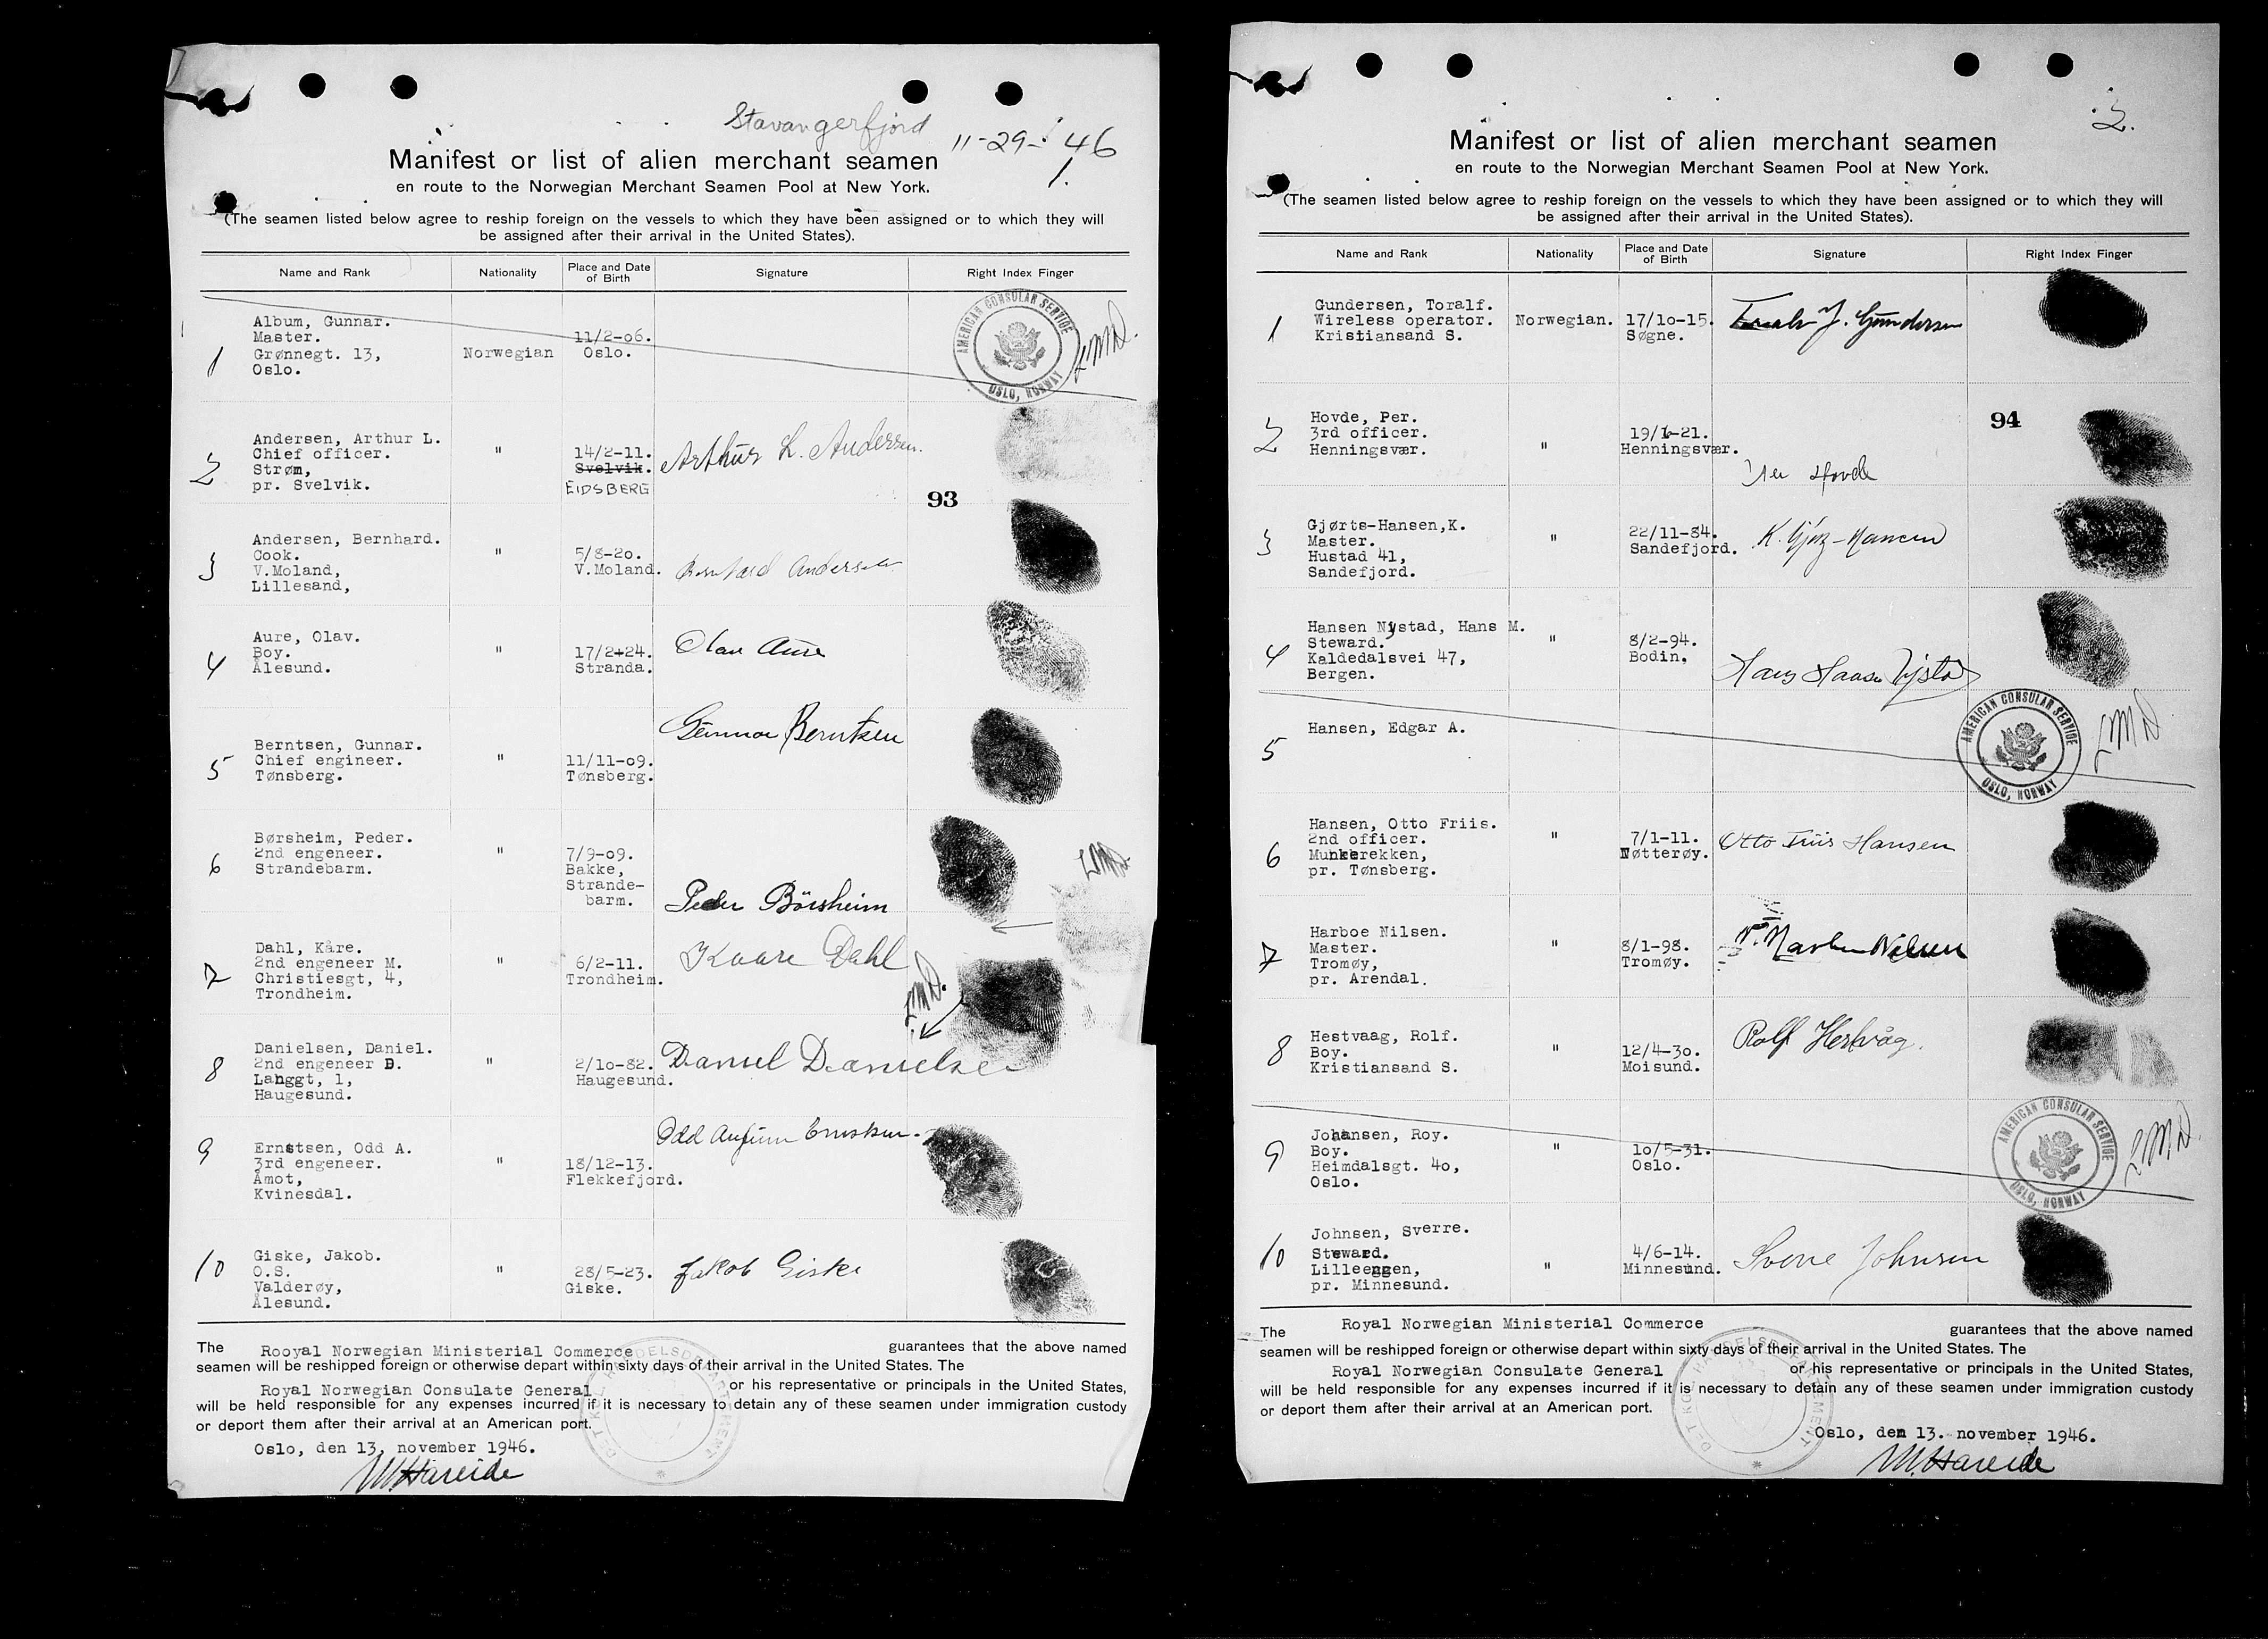 Stavangerfjord
11-29-46
1.
Manifest or list of alien merchant seamen
en route to the Norwegian Merchant Seamen Pool at New York.
(The seamen listed below agree to reship foreign on the vessels to which they have been assigned or to which they will
be assigned after their arrival in the United States).
Name and Rank Nationality Place and Date of Birth Signature Right Index Finger
1
Album, Gunnar.
Master.
Grønnegt. 13,
Oslo.
Norwegian
11/2-06.
Oslo.
AMERICAN CONSULAR SERVICE
OSLO, NORWAY
LMD.
2
Andersen, Arthur L.
Chief officer.
Strøm,
pr. Svelvik.
"
14/2-11.
Svelvik.
EIDSBERG
Arthur L. Andersen.
93
3
Andersen, Bernhard.
Cook.
V.Moland,
Lillesand,
"
5/8-20.
V.Moland.
Bernhard Andersen
4
Aure, Olav.
Boy.
Ålesund.
"
17/2-24.
Stranda.
Olav Aure
5
Berntsen, Gunnar.
Chief engineer.
Tønsberg.
"
11/11-09.
Tønsberg.
Gunnar Berntsen
6
Børsheim, Peder.
2nd engeneer.
Strandebarm.
"
7/9-09.
Bakke,
Strande-
barm.
Peder Börsheim
LMD.
7
Dahl, Kåre.
2nd engeneer M.
Christiesgt, 4,
Trondheim.
"
6/2-11.
Trondheim.
Kaare Dahl
LMD.
8
Danielsen, Daniel.
2nd engeneer D.
Langgt, 1,
Haugesund.
"
2/10-82.
Haugesund.
Daniel Danielsen
9
Ernstsen, Odd A.
3rd engeneer.
Åmot,
Kvinesdal.
"
18/12-13.
Flekkefjord.
Odd Ernstsen.
10
Giske, Jakob.
O.S.
Valderøy,
Ålesund.
"
28/5-23.
Giske.
Jakob Giske
The Rooyal Norwegian Ministerial Commerce guarantees that the above named
seamen will be reshipped foreign or otherwise depart within sixty days of their arrival in the United States. The
Royal Norwegian Consulate General or his representative or principals in the United States,
will be held responsible for any expenses incurred if it is necessary to detain any of these seamen under immigration custody
or deport them after their arrival at an American port.
DET KGL. HANDELSDEPARTEMENT
Oslo, den 13. november 1946.
M. Hareide
2.
Manifest or list of alien merchant seamen
en route to the Norwegian Merchant Seamen Pool at New York.
(The seamen listed below agree to reship foreign on the vessels to which they have been assigned or to which they will
be assigned after their arrival in the United States).
Name and Rank Nationality Place and Date of Birth Signature Right Index Finger
1
Gundersen, Toralf.
Wireless operator.
Kristiansand S.
Norwegian.
17/10-15.
Søgne.
Toralv J. Gundersen
2
Hovde, Per.
3rd officer.
Henningsvær.
"
19/1-21.
Henningsvær.
Per Hovde
94
3
Gjørts-Hansen,K.
Master.
Hustad 41,
Sandefjord.
"
22/11-84.
Sandefjord.
K. Gjørtz-Hansen
4
Hansen Nystad, Hans M.
Steward.
Kaldedalsvei 47,
Bergen.
"
8/2-94.
Bodin.
Hans Hansen Nystad
5
Hansen, Edgar A.
AMERICAN CONSULAR SERVICE
OSLO, NORWAY
LMD
6
Hansen, Otto Friis.
2nd officer.
Munkerekken,
pr. Tønsberg.
"
7/1-11.
Nøtterøy.
Otto Friis Hansen
7
Harboe Nilsen.
Master.
Tromøy,
pr. Arendal.
"
8/1-98.
Tromøy.
N. Harboe Nilsen
8
Hestvaag, Rolf.
Boy.
Kristiansand S.
"
12/4-30.
Moisund.
Rolf Hestvåg.
9
Johansen, Roy.
Boy.
Heimdalsgt. 40,
Oslo.
"
10/5-31.
Oslo.
AMERICAN CONSULAR SERVICE
OSLO, NORWAY
LMD.
10
Johnsen, Sverre.
Steward.
Lilleeggen,
pr. Minnesund.
"
4/6-14.
Minnesund.
Sverre Johnsen
The Royal Norwegian Ministerial Commerce guarantees that the above named
seamen will be reshipped foreign or otherwise depart within sixty days of their arrival in the United States. The
Royal Norwegian Consulate General or his representative or principals in the United States,
will be held responsible for any expenses incurred if it is necessary to detain any of these seamen under immigration custody
or deport them after their arrival at an American port.
DET KGL. HANDELSDEPARTEMENT
Oslo, den 13. november 1946.
M. Hareide